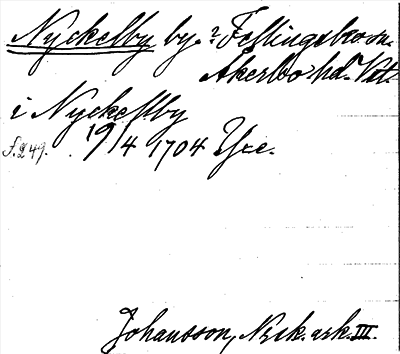 Nyckelby by. ? Fellingsbro sn.
Åkerbo hd. Vstm.
i Nyckelby
f. 249. 19/4 1704
Johansson, Nzsk. ark. III.